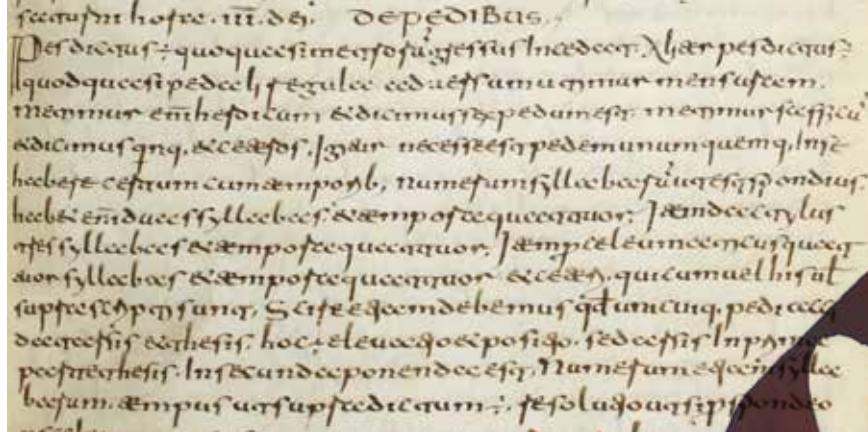 DE PEDIBUS.
Pes dictus ÷ quo quasi metrorũ gressus incedat. Aliter pes dictus.
quod quasi pedali regula ad uersum utimur mensuram.
metimur enĩ heroicum et dicimus sex pedum est. metimur saffi cũ
et dicimus qinq. et ceteros. Igitur necesse est pedem unum quemq. in se
habere certum cum temporib, numerum syllabarũ ut est spondius
habet enĩ duas syllabas. et tempora quattuor; Item dactylus
tres syllabas et tempora quattuor; Item proceleumaticus quat
tuor syllabas et tempora quattuor et ceteri. qui cum uel his ul
supra scripti sunt, Scire etem debemus qd unicuiq. pedi acci
dat arsis et thesis. hoc ÷ eleuatio et positio. sed arsis in prima
parte thesis. in secunda ponenda est, Numerum etem sylla
barum. tempus ut supra dictum ÷. resolutio ut si p spondeo